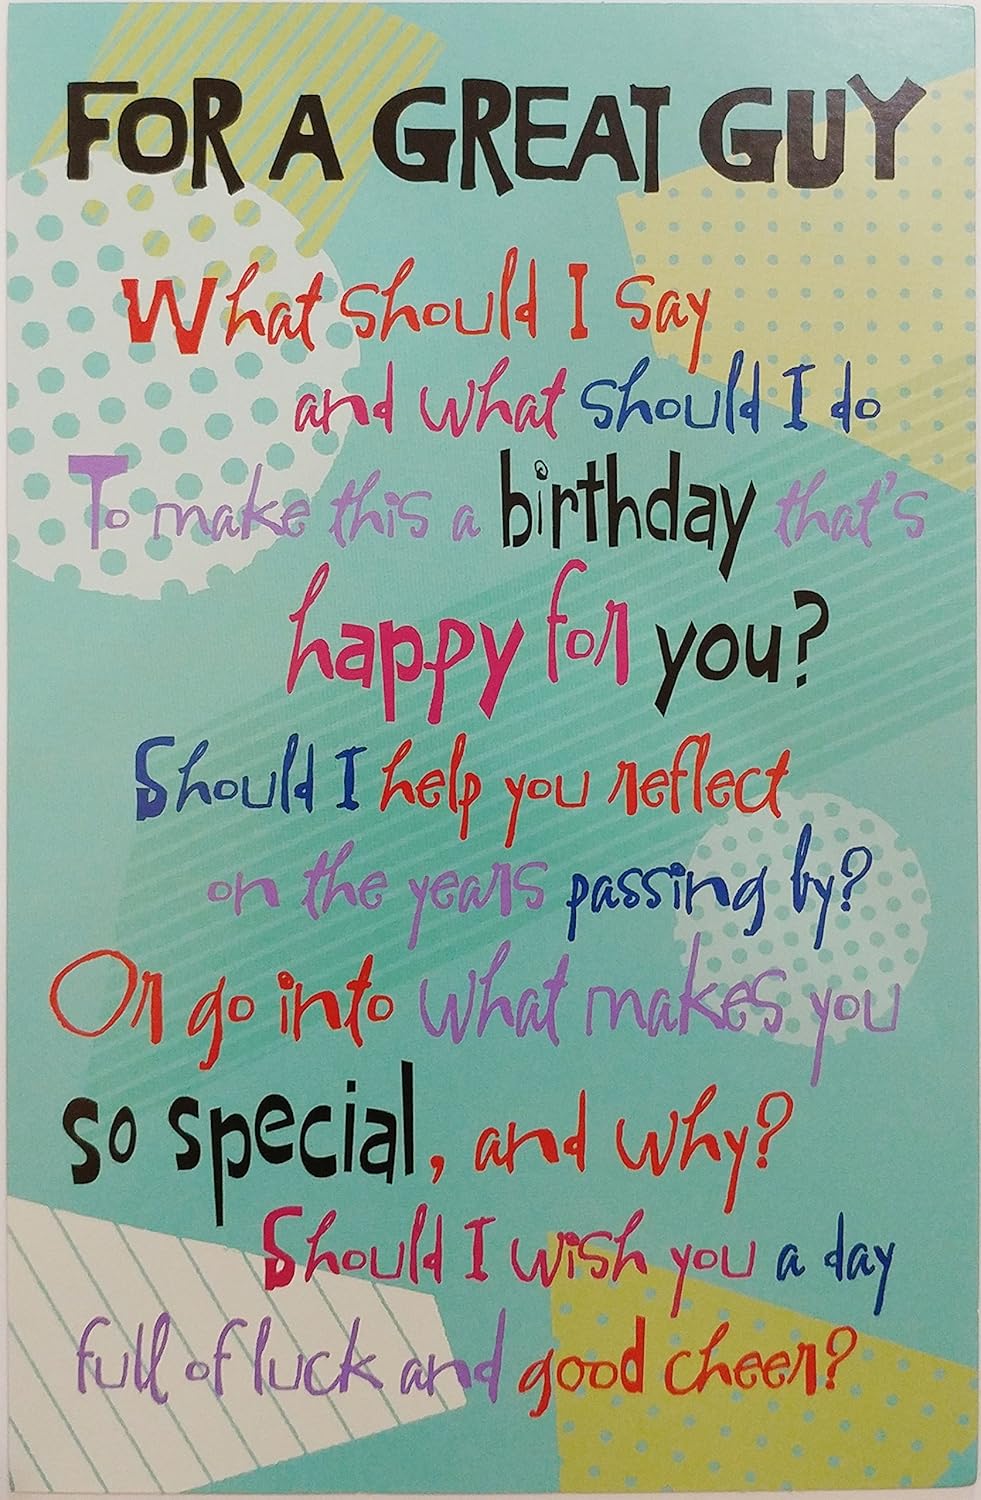 FOR A GREAT GUY
What should I say
and what should I do
To make this a birthday that's
happy for you?
Should I help you reflect
on the years passing by?
Or go into what makes you
so special, and why?
Should I wish you a day
full of luck and good cheer?